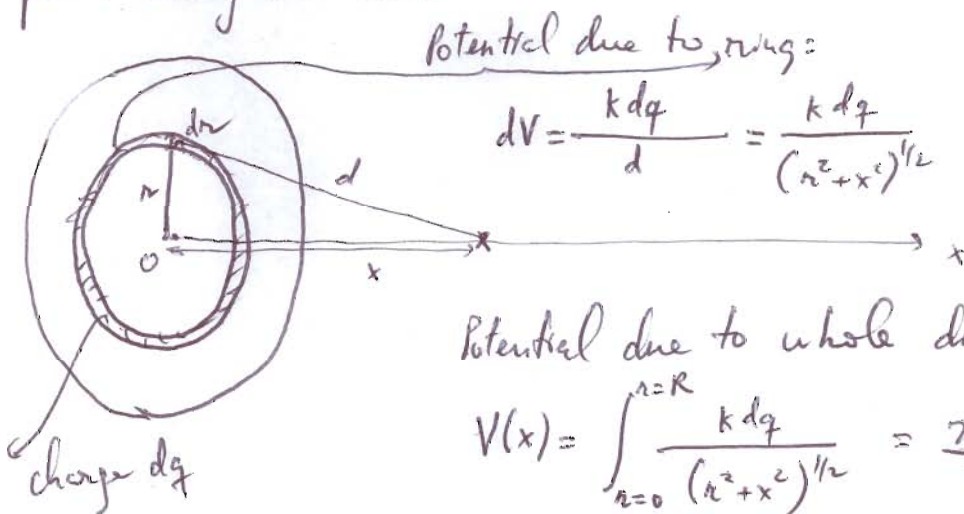 Potential due to ring:
dV = k dq / d = k dq / (r² + x²)^{1/2}
dr
r
d
O
x
x
Potential due to whole
V(x) = ∫_{r=0}^{r=R} k dq / (r² + x²)^{1/2} =
charge dq